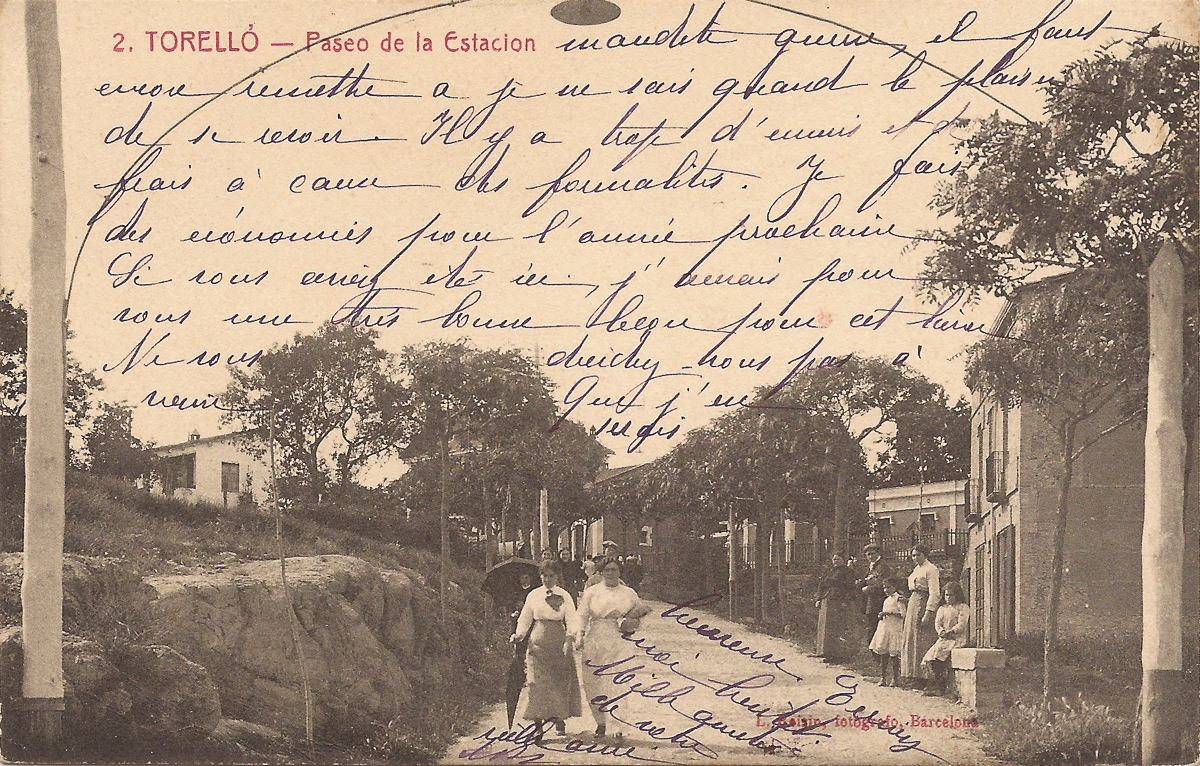 2. TORELLÓ — Paseo de la Estacion
maudite guerre, il faut
encore remettre a je ne sais quand le plaisir
de se revoir. Il y a trop d'ennuis et de
frais à cause des formalités. Je fais
des économies pour l'année prochaine
Si vous aviez été ici, j'aurais pour
vous une très bonne
pour cet hiver
Ne vous
nous pas à
venir
Que j'en
serais
heureuse
moi
Mille
de votre
vieille amie
L. Roisin, fotógrafo, Barcelona